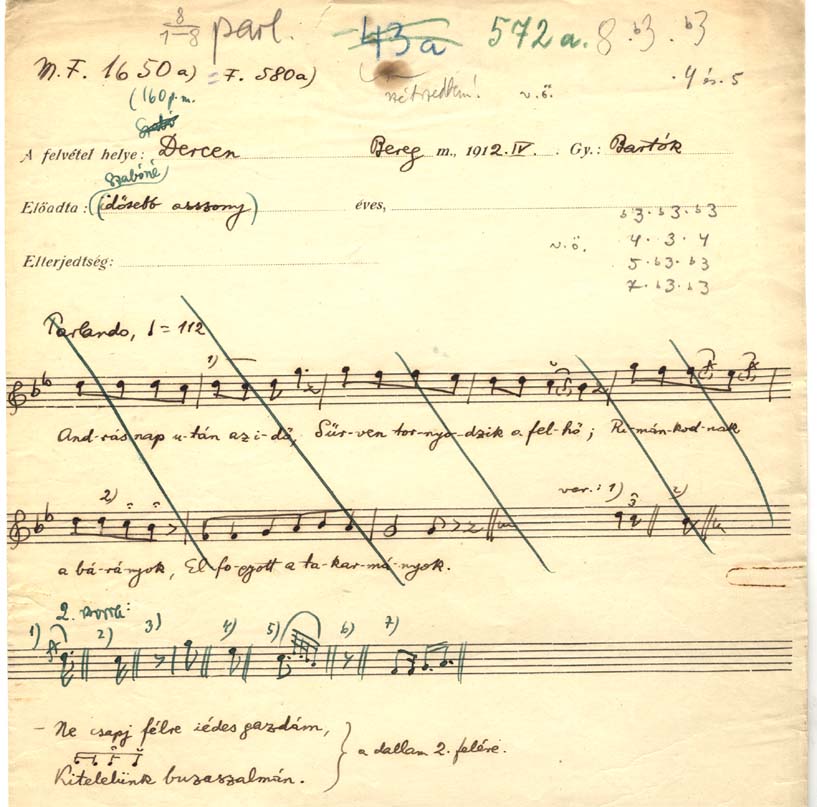 8 / 1–8 parl. 43a 572a. 8 ♭3 . ♭3
M.F. 1650a) = F. 580a) szétszedtem! v.ö. . 4 és . 5
(160 p.m.
Szabó
A felvétel helye: Dercen Bereg m., 1912. IV. Gy.: Bartók
Szabóné
Előadta: (idősebb asszony) éves,
♭3 . ♭3 . ♭3
v.ö. 4 . 3 . 4
Elterjedtség:
5 . ♭3 . ♭3
7 . ♭3 . ♭3
Parlando, ♩ = 112
1)
And-rás nap u-tán az i-dő, Sűr-ven tor-nyo-dzik a fel-hő; Ri-mán-kod-nak
2) var.: 1) 2)
a bá-rá-nyok, El fo-gyott a ta-kar-má-nyok.
2. :
1) 2) 3) 4) 5) 6) 7)
– Ne csapj félre iédes gazdám,
a dallam 2. felére.
Kitelelünk buzaszalmán.